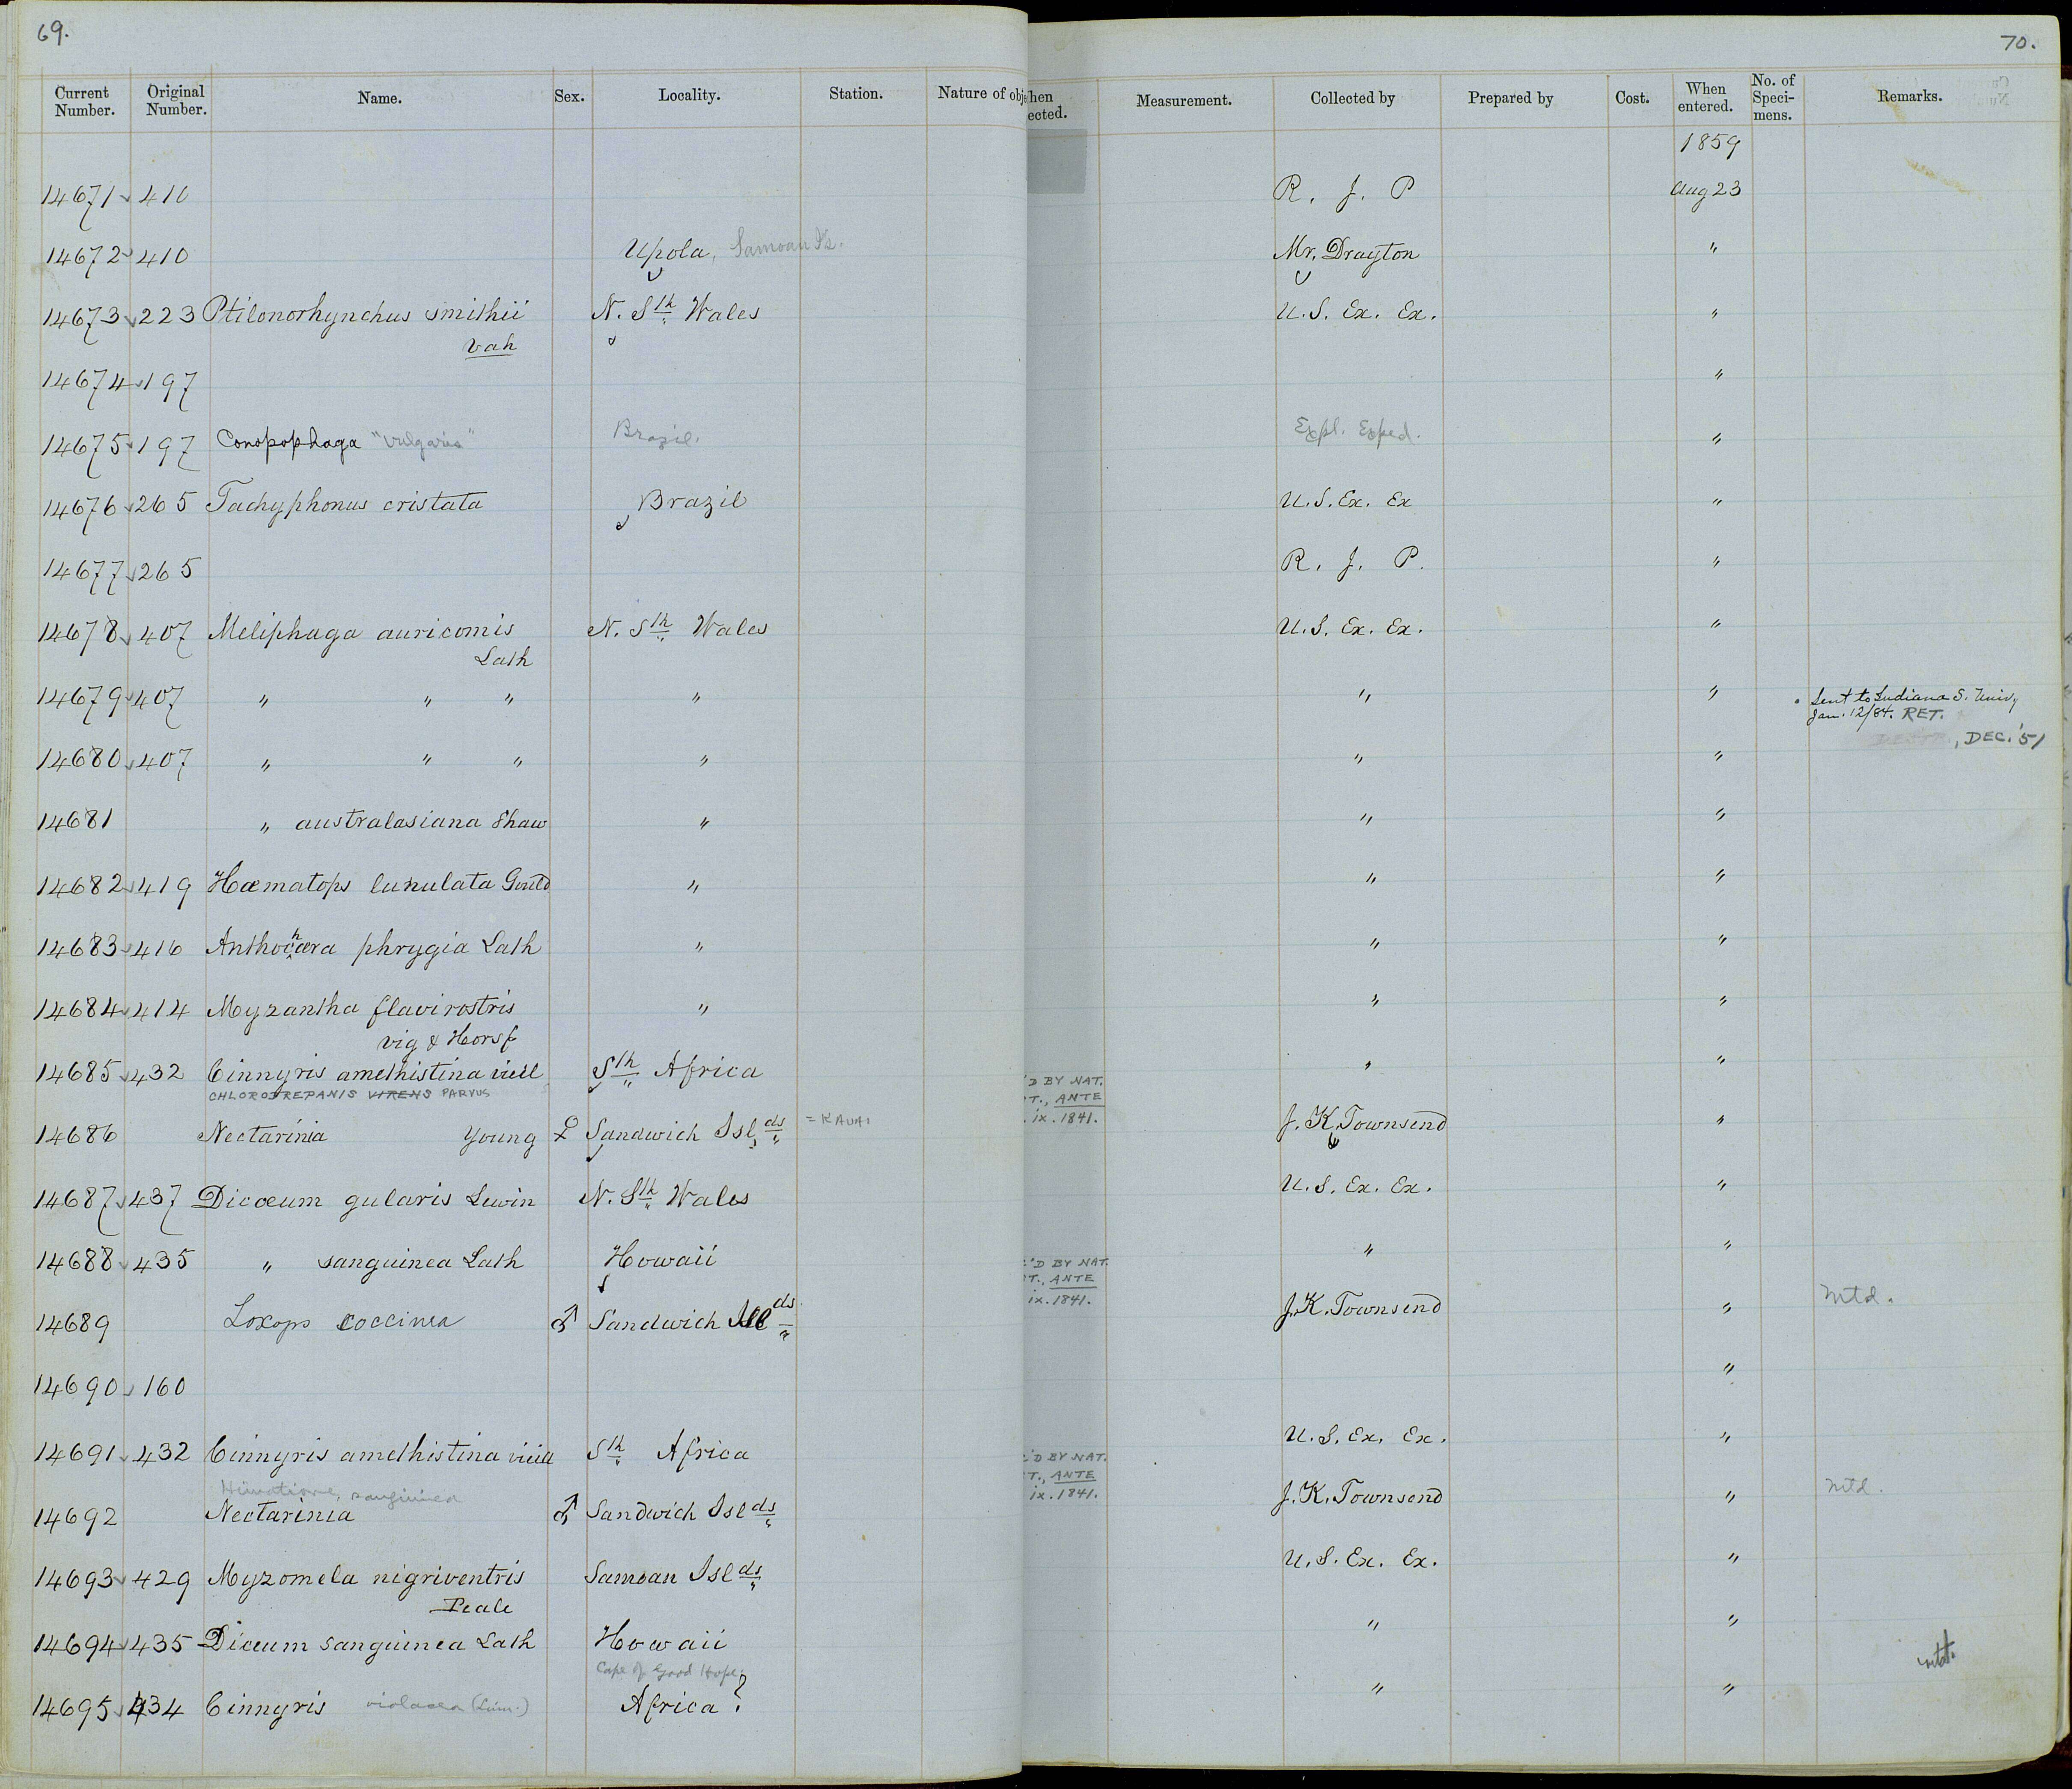 69.
70.
Current Number. Original Number. Name. Sex. Locality. Station. Nature of obje
hen ected. Measurement. Collected by Prepared by Cost. When entered. No. of Speci-mens. Remarks.
1859
14671 410 R. J. P Aug 23
14672 410 Upola, Samoan Is. Mr. Drayton "
14673 223 Ptilonorhynchus smithii N. Sth Wales U.S. Ex. Ex. "
Vah
14674 197 "
14675 197 Conopophaga "vulgaris" Brazil. Expl. Exped. "
14676 265 Tachyphonus cristata Brazil U.S. Ex. Ex "
14677 265 R. J. P. "
14678 407 Meliphaga auricomis N. Sth Wales U.S. Ex. Ex. "
Lath
14679 407 " " " " " " Sent to Indiana S. Univ,
Jan. 12/84. RET.
, DEC. '51
14680 407 " " " " " "
14681 " australasiana Shaw " " "
14682 419 Hæmatops lunulata Gould " " "
14683 416 Anthochæra phrygia Lath " " "
14684 414 Myzantha flavirostris " " "
Vig & Horsf
14685 432 Cinnyris amethistina vieil Sth Africa " "
CHLORODREPANIS VIRENS PARVUS
'D BY NAT.
T., ANTE
ix. 1841.
14686 Nectarinia Young ♀ Sandwich Islds = KAUAI J. K. Townsend "
14687 437 Dicæum gularis Lewin N. Sth Wales U.S. Ex. Ex. "
14688 435 " sanguinea Lath Howaii " "
'D BY NAT.
T., ANTE
ix. 1841.
14689 Loxops coccinea ♂ Sandwich Islds J. K. Townsend " Mtd.
14690 160 "
14691 432 Cinnyris amethistina viei Sth Africa U.S. Ex. Ex. "
'D BY NAT.
T., ANTE
ix. 1841.
Himatione, sanguinea
14692 Nectarinia ♂ Sandwich Islds J. K. Townsend " Mtd.
14693 429 Myzomela nigriventris Samoan Islds U.S. Ex. Ex. "
Peale
14694 435 Diceum sanguinea Lath Howaii " "
Cape of Good Hope,
14695 434 Cinnyris violacea (Linn.) Africa? " "